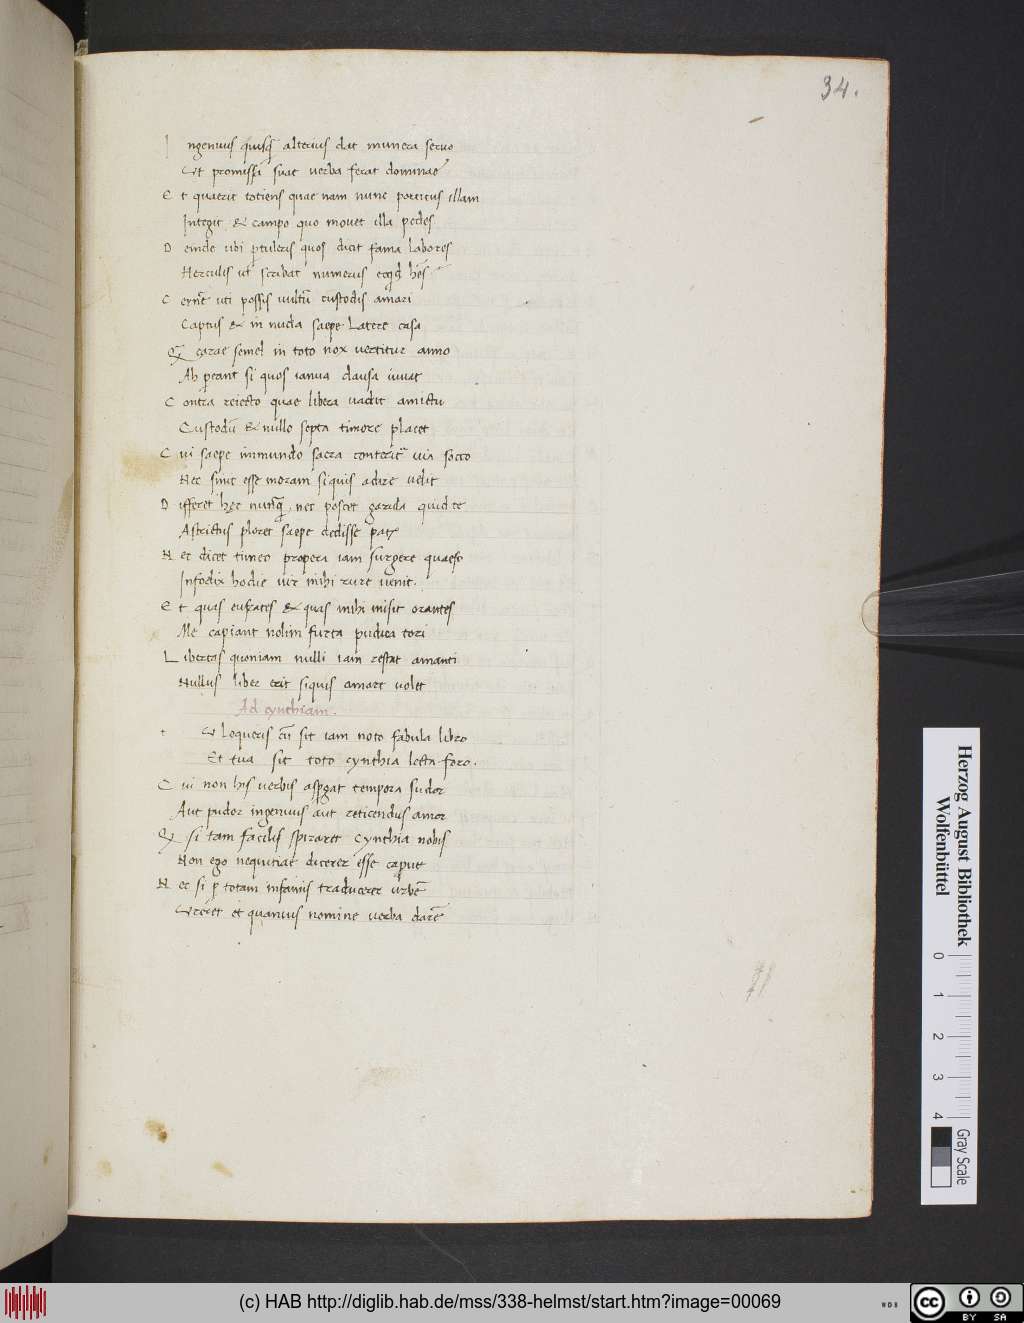 34.
I ngenuus quisq̃ alterius dat munera seruo
Vt promissa suae uerba ferat dominae
E t quaerit totiens quae nam nunc porticus illam
Integit & campo quo mouet illa pedes
D einde ubi ꝑtuleris quos dicit fama labores
Herculis ut scribat numerus
C ernẽ uti possis uultũ custodis amari
Captus & in nuda saepe latere casa
Q carae semel in toto nox uertitur anno
Ah ꝑeant si quos ianua clausa iuuat
C ontra reiecto quae libera uadit amictu
Custodũ & nullo septa timore placet
C ui saepe inmundo sacra conterit̃ uia socco
Nec sinit esse moram siquis adire uelit
D ifferet hęc nunq̃, nec poscet garula quid te
Astrictus ploret saepe dedisse pat
N ec dicet timeo propera iam surgere quaeso
Infoelix hodie uir mihi rure uenit.
E t quas eufrates & quas mihi misit orantes
Me capiant nolim furta pudica tori
L ibertas quoniam nulli iam restat amanti
Nullus liber erit siquis amare uolet
Ad cynthiam.
t V loqueris cũ sit iam noto fabula libro
Et tua sit toto cynthia lecta foro.
C ui non his uerbis aspgat tempora sudor
Aut pudor ingenuus aut reticendus amor
Q si tam facilis spiraret Cynthia nobis
Non ego nequitiae dicerer esse caput
N ec si ꝑ totam infamis traducerer urbẽ
Vreret et quamuis nomine uerba darẽ
Herzog August Bibliothek
Wolfenbüttel
0 1 2 3 4
Gray Scale
(c) HAB http://diglib.hab.de/mss/338-helmst/start.htm?image=00069
WDB
cc BY SA